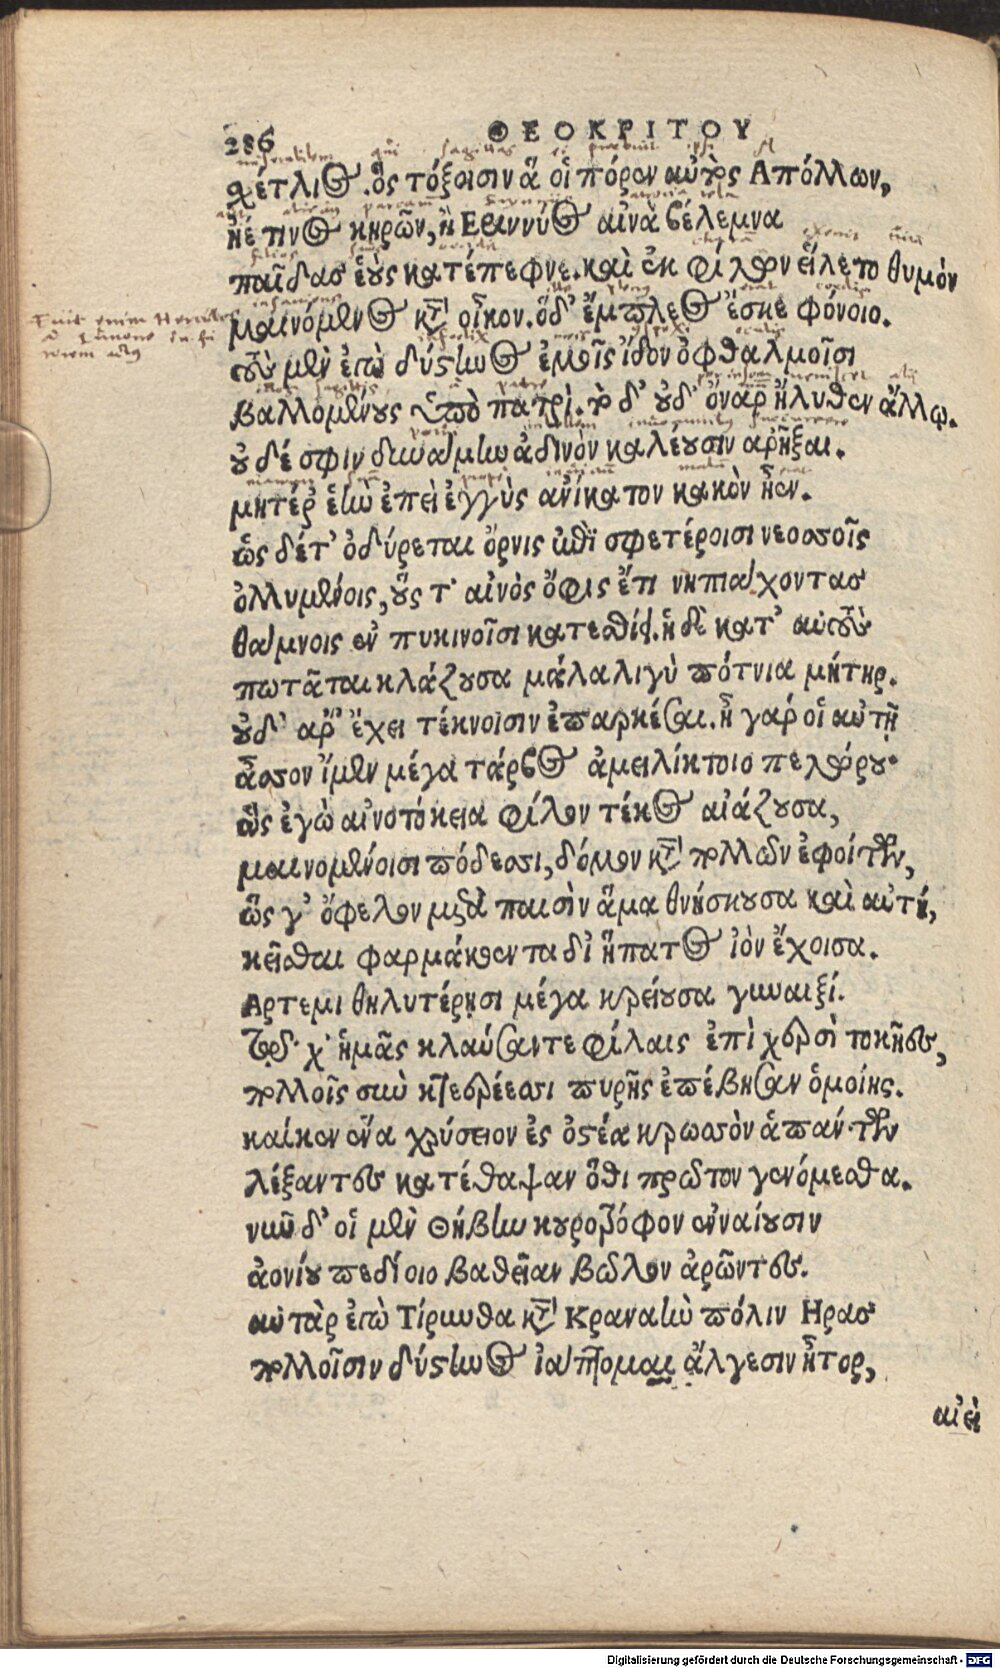 286
ΘΕΟΚΡΙΤΟΥ
σχέτλιος. ὃς τόξοισιν ἅ οἱ πόρεν αὐτὸς Απόλλων,
ἠέ τινος κηρῶν, ἢ Εριννύος αἰνὰ βέλεμνα
παῖδας ἑοὺς κατέπεφνε. καὶ ἐκ φίλον εἵλετο θυμὸν
μαινόμενος κατ' οἶκον. ὅδ' ἔμπλεος ἔσκε φόνοιο.
τοὺς μὲν ἐγὼ δύστηνος ἐμοῖς ἴδον ὀφθαλμοῖσι
βαλλομένους ὑπὸ πατρὶ. τὸ δ' οὐδ' ὄναρ ἤλυθεν ἄλλῳ.
οὐδέ σφιν δυνάμην ἀδινὸν καλεῦσιν ἀρῆξαι.
μητέρ' ἑὴν ἐπεὶ ἐγγὺς ἀνίκατον κακὸν ἦεν.
ὡς δέ τ' ὀδύρεται ὄρνις ἐπὶ σφετέροισι νεοσσοῖς
ὀλλυμένοις, οὕς τ' αἰνὸς ὄφις ἔτι νηπιάχοντας
θάμνοις ἐν πυκινοῖσι κατεσθίῃ. ἡ δὲ κατ' αὐτοὺς
πωτᾶται κλάζουσα μάλα λιγὺ πότνια μήτηρ.
οὐδ' ἄρ' ἔχει τέκνοισιν ἐπαρκέσαι. ἦ γάρ οἱ αὐτῇ
ἆσσον ἴμεν μέγα τάρβος ἀμειλίκτοιο πελώρου·
ὣς ἐγὼ αἰνοτόκεια φίλον τέκος αἰάζουσα,
μαινομένοισι πόδεσσι, δόμον κατὰ πολλὸν ἐφοίτων,
ὥς γ' ὄφελον μετὰ παισὶν ἅμα θνήσκουσα καὶ αὐτή,
κεῖσθαι φαρμακόεντα δι' ἥπατος ἰὸν ἔχοισα.
Αρτεμι θηλυτέρῃσι μέγα κρείουσα γυναιξί.
τῷ δ' χ' ἡμᾶς κλαύσαντε φίλαις ἐπὶ χερσὶ τοκῆες,
πολλοῖς σὺν κτερέεσσι πυρῆς ἐπέβησαν ὁμοίης.
καί κεν ἕνα χρύσειον ἐς ὀστέα κρωσσὸν ἁπάντων
λέξαντες κατέθαψαν ὅθι πρῶτον γενόμεσθα.
νῦν δ' οἱ μὲν Θήβην κουροτρόφον ἐνναίουσιν
ἀονίου πεδίοιο βαθεῖαν βῶλον ἀρῶντες.
αὐτὰρ ἐγὼ Τίρυνθα κατὰ Κραναὴν πόλιν Ηρας
πολλοῖσιν δύστηνος ἰάπτομαι ἄλγεσιν ἦτορ,
αἰεὶ
Digitalisierung gefördert durch die Deutsche Forschungsgemeinschaft - DFG